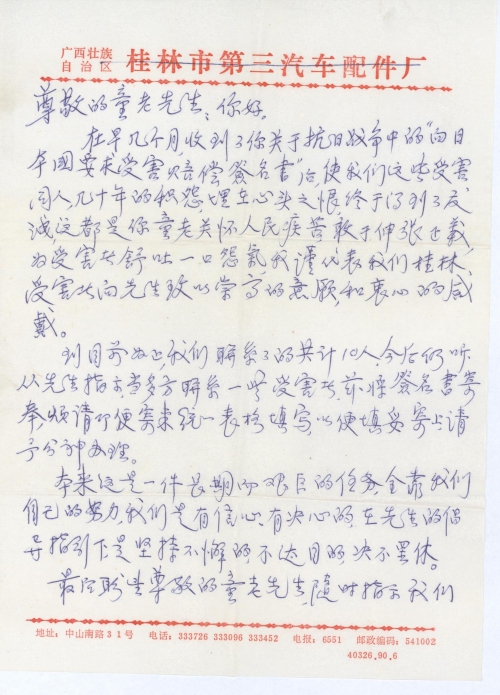 广西壮族
自治区 桂林市第三汽车配件厂
尊敬的童老先生：你好。
在早几个月,收到了你关于抗日战争中的"向日
本國要求受害赔偿签名書"后,使我们这些受害
同人几十年的积怨,埋在心头之恨终于得到了反
诚,这都是你童老关怀人民疾苦敢于伸张正義,
为受害者舒吐一口怨氣,我谨代表我们桂林
受害者向先生致以崇高的意願,和衷心的感
戴。
到目前为止,我们联系了的共计10人,今后仍听
从先生指示,当多方联系一些受害者,兹将签名書寄
奉烦请即便寄来统一表格填写,以便填妥寄上请
予分神办理。
本来这是一件長期而艰巨的任务,全靠我们
自己的努力,我们是有信心、有决心的,在先生的倡
导指引下是坚持不懈的,不达目的,决不罢休。
最后盼望尊敬的童老先生,随时指示我们
地址：中山南路31号 电话：333726 333096 333452 电报：6551 邮政编码：541002
40326.90.6